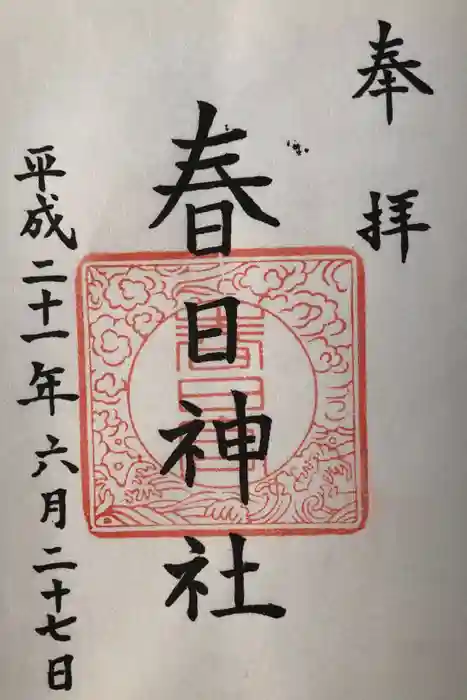 奉拝
春日神社
平成二十一年六月二十七日